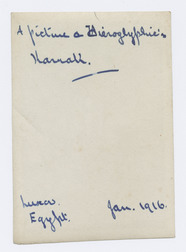 A picture a Hieroglyphic's
Karnak.
Luxor.
Egypt. Jan. 1916.